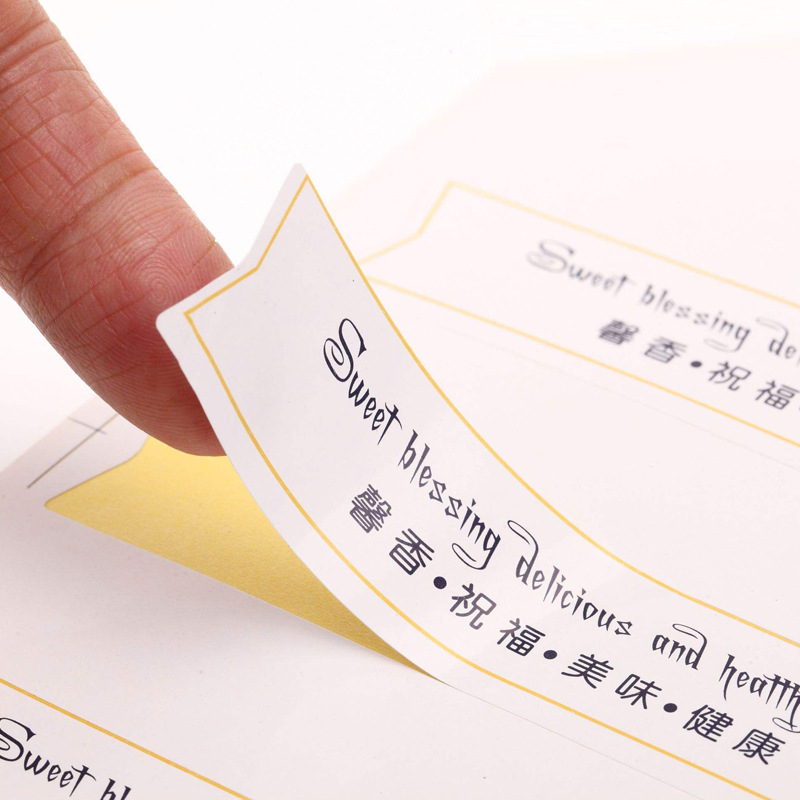 Sweet blessing
馨香•祝福
Sweet blessing delicious and healthy
馨香•祝福•美味•健康
Sweet